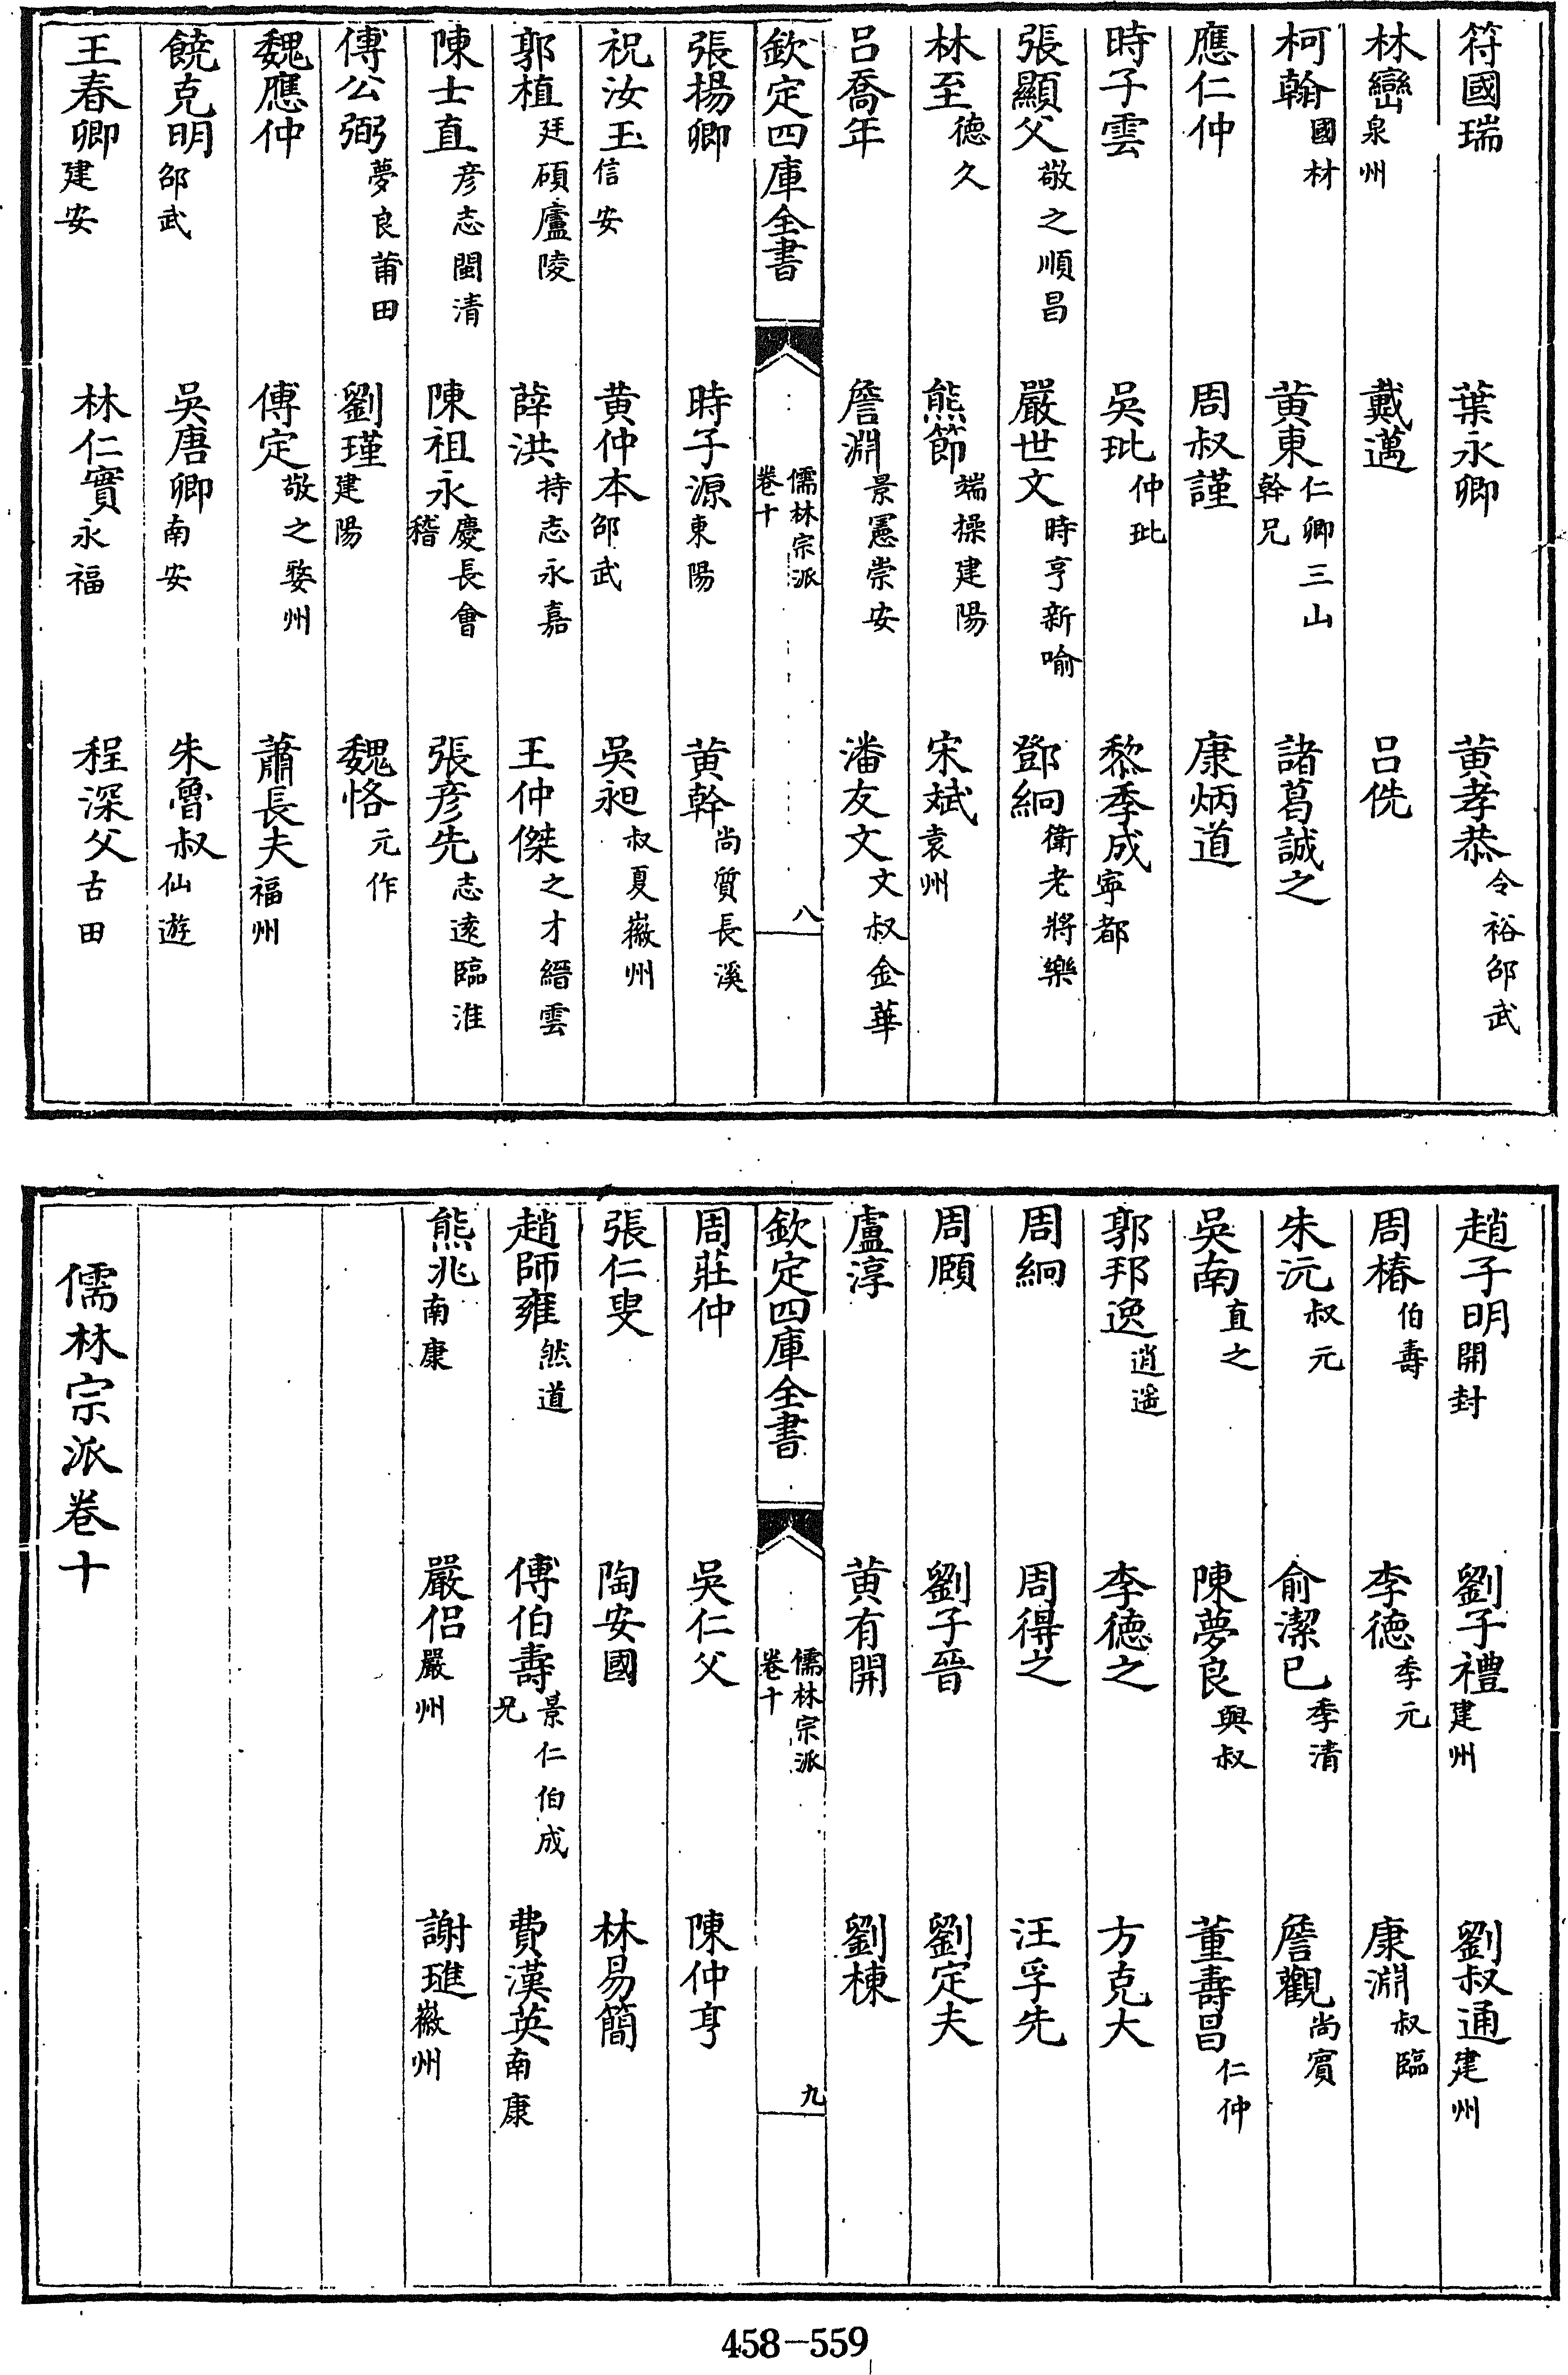 符國瑞 葉永卿 黄孝恭令裕邵武
林巒泉州 戴邁 呂侁
柯翰國材 黄東仁卿三山幹兄 諸葛誠之
應仁仲 周叔謹 康炳道
時子雲 吳玭仲玭 黎季成寜都
張顯父敬之順昌 嚴世文時亨新喻 鄧絅衛老將樂
林至德久 熊節端操建陽 宋斌袁州
呂喬年 詹淵景憲崇安 潘友文文叔金華
欽定四庫全書 儒林宗派卷十 八
張揚卿 時子源東陽 黄幹尚質長溪
祝汝玉信安 黄仲本邵武 吳昶叔夏徽州
郭植廷碩廬陵 薛洪持志永嘉 王仲傑之才縉雲
陳士直彦志閩清 陳祖永慶長會稽 張彦先志遠臨淮
傅公弼夢良莆田 劉瑾建陽 魏恪元作
魏應仲 傅定敬之婺州 蕭長夫福州
饒克明邵武 吳唐卿南安 朱魯叔仙遊
王春卿建安 林仁實永福 程深父古田
趙子明開封 劉子禮建州 劉叔通建州
周椿伯壽 李德季元 康淵叔臨
朱沅叔元 俞潔已季清 詹觀尚賓
吳南直之 陳夢良與叔 董壽昌仁仲
郭邦逸逍遥 李德之 方克大
周絅 周得之 汪孚先
周頤 劉子晉 劉定夫
盧淳 黄有開 劉棟
欽定四庫全書 儒林宗派卷十 九
周莊仲 吳仁父 陳仲亨
張仁叟 陶安國 林易簡
趙師雍然道 傅伯壽景仁伯成兄 費漢英南康
熊兆南康 嚴侣嚴州 謝璡徽州
儒林宗派卷十
458-559